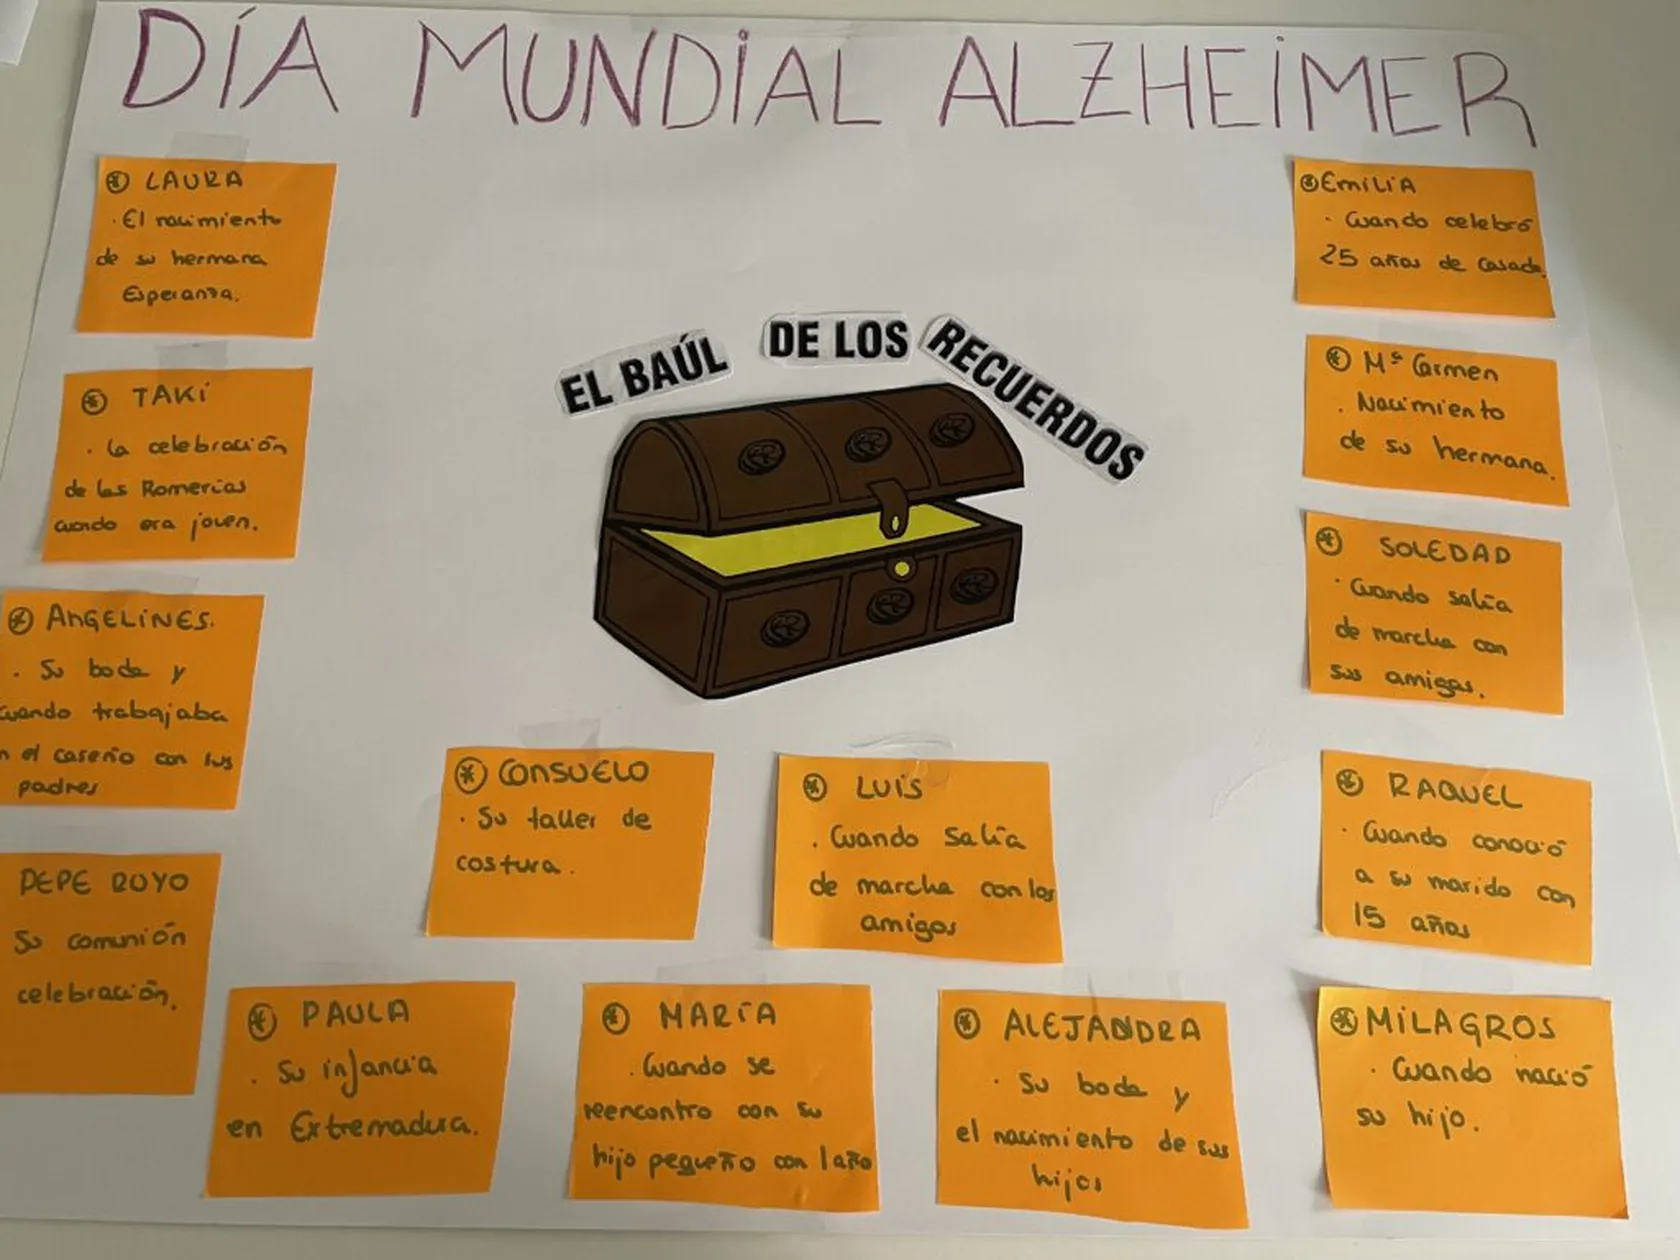 DÍA MUNDIAL ALZHEIMER
EL BAÚL DE LOS RECUERDOS
LAURA
· El nacimiento
de su hermana
Esperanza.
TAKI
· La celebración
de las Romerías
cuando era joven.
ANGELINES.
· Su boda y
cuando trabajaba
en el caserío con sus
padres
PEPE ROYO
Su comunión
celebración.
CONSUELO
· Su taller de
costura.
LUIS
· Cuando salía
de marcha con los
amigos
PAULA
· Su infancia
en Extremadura.
MARÍA
· Cuando se
reencontro con su
hijo pequeño con 1 año
ALEJANDRA
· Su boda y
el nacimiento de sus
hijos
EMILIA
· Cuando celebró
25 años de casada.
Mª Carmen
· Nacimiento
de su hermana.
SOLEDAD
· Cuando salía
de marcha con
sus amigas.
RAQUEL
· Cuando conoció
a su marido con
15 años
MILAGROS
· Cuando nació
su hijo.